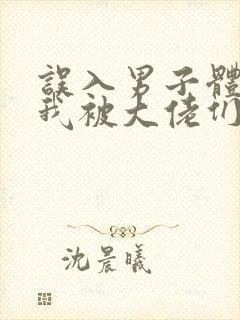 誤入男子體
我被大佬们
沈晨曦